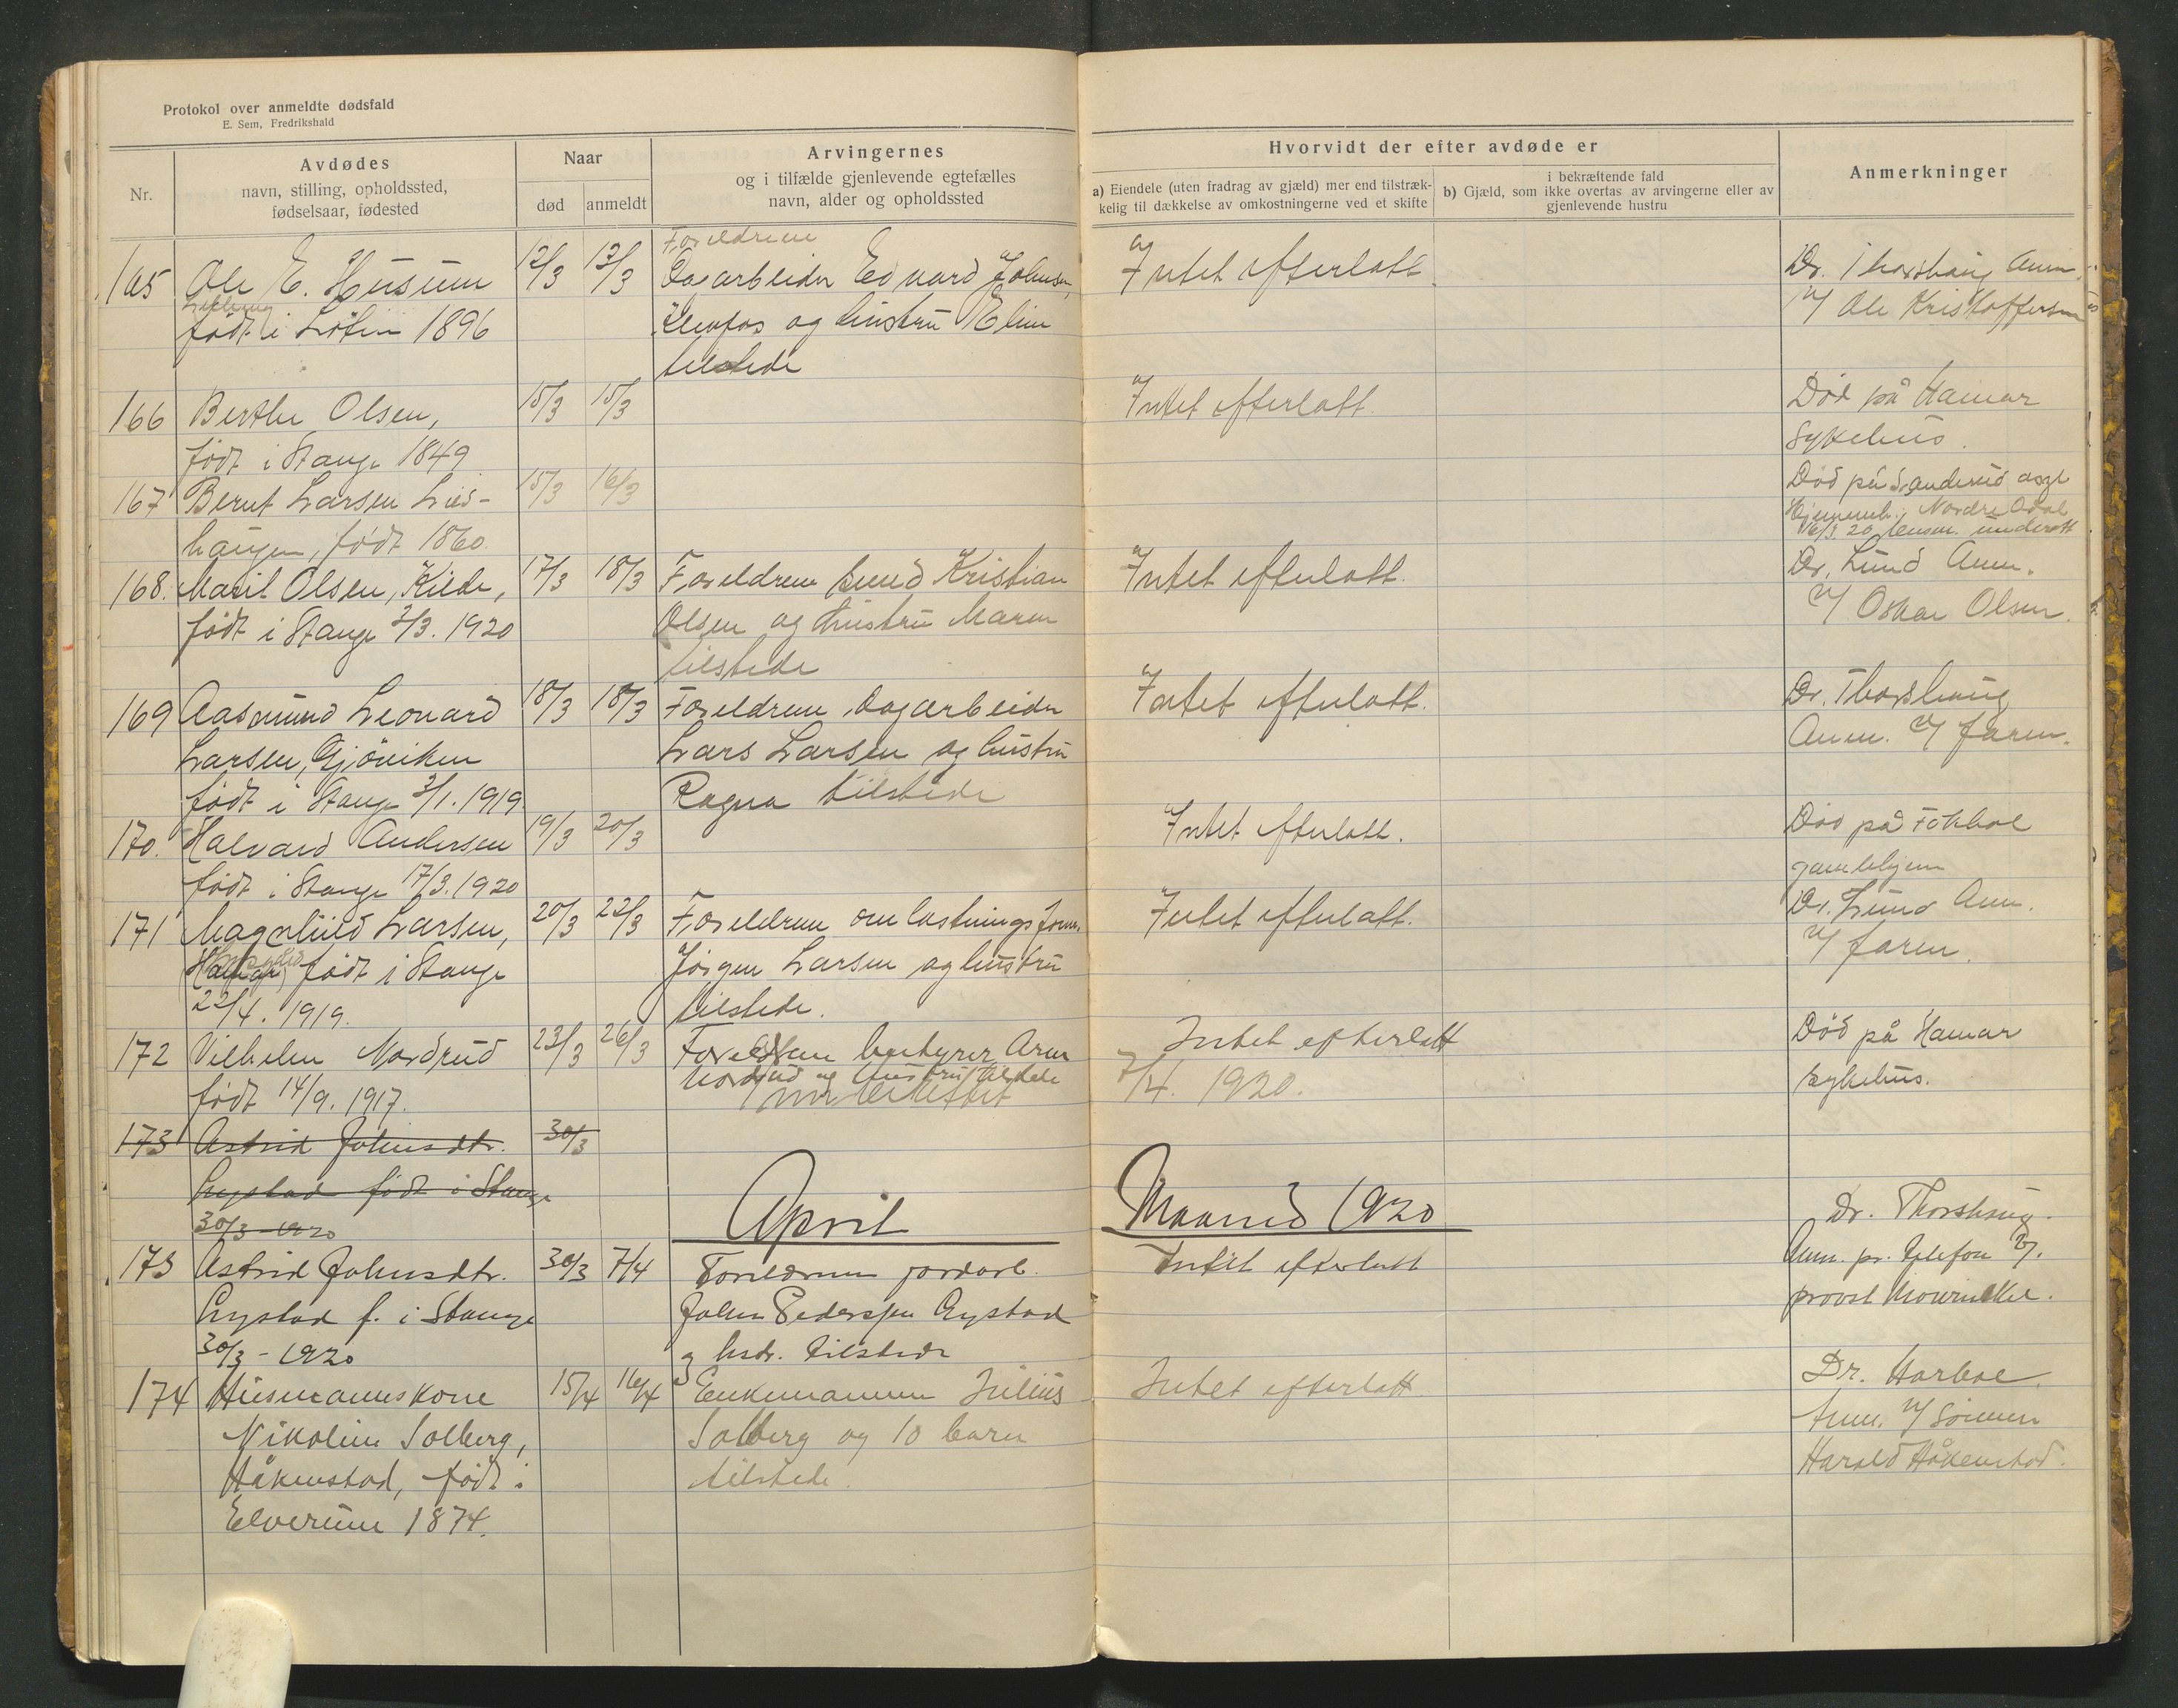 Protokol over anmeldte dødsfald
E. Sem, Fredrikshald
Nr.
Avdødes
navn, stilling, opholdssted,
fødselsaar, fødested
Naar
død
anmeldt
Arvingernes
og i tilfælde gjenlevende egtefælles
navn, alder og opholdssted
Hvorvidt der efter avdøde er
a) Eiendele (uten fradrag av gjæld) mer end tilstræk-
kelig til dækkelse av omkostningerne ved et skifte
i bekræftende fald
b) Gjæld, som ikke overtas av arvingerne eller av
gjenlevende hustru
Anmerkninger
165 Ole E. Husum
født i Løten 1896
12/3 13/3
Foreldrene
Dagarbeider Edvard Johnsen,
og hustru Eline
tilstede
Intet efterlatt
Dr. Thorshaug Anm.
v/ Ole Kristoffersen
166 Berthe Olsen,
født i Stange 1849
15/3 15/3
Intet efterlatt.
Død på Hamar
sykehus.
167 Bernt Larsen Lies-
haugen, født 1860.
15/3 16/3
Død på Sanderud asyl
Hjemmeh. Nordre Odal
16/3 20 lensm. underrett
168. Marit Olsen, Kilde,
født i Stange 2/3. 1920
17/3 18/3
Foreldrene smed Kristian
Olsen og hustru Maren
tilstede
Intet efterlatt.
Dr. Lund Anm.
v/ Oskar Olsen.
169 Aasmund Leonard
Larsen, Gjøviken
født i Stange 3/1. 1919.
18/3 18/3
Foreldrene, dagarbeider
Lars Larsen og hustru
Ragna tilstede
Intet efterlatt.
Dr. Thorshaug
Anm. v/ faren.
170. Halvard Andersen
født i Stange 17/3. 1920
19/3 20/3
Intet efterlatt.
Død på Fokhol
gamlehjem
171 Magnhild Larsen,
født i Stange
22/4. 1919.
20/3 22/3
Foreldrene omlastningsform.
Jørgen Larsen og hustru
tilstede.
Intet efterlatt.
Dr. Lund Anm.
v/ faren.
172 Vilhelm Nordrud
født 14/9. 1917.
23/3 26/3
Foreldrene bestyrer Arne
Nordrud og hustru tilstede
Intet efterlatt
7/4. 1920.
Død på Hamar
sykehus.
173 Astrid Johnsdtr.
Gystad født i Stange
30/3 1920
30/3
April Maaned 1920
173 Astrid Johnsdtr.
Gystad f. i Stange
30/3 - 1920
30/3 7/4
Foreldrene jordarb.
Johan Pedersen Gystad
og hstr. tilstede
Intet efterlatt
Dr. Thorshaug.
Anm. pr. telefon v/.
provst Mowinckel.
174 Husmannskone
Nikoline Solberg,
Håkenstad, født i
Elverum 1874.
15/4 16/4
Enkemannen Julius
Solberg og 10 barn
tilstede.
Intet efterlatt
Dr. Harboe.
Anm. v/ sønnen
Harald Håkenstad.